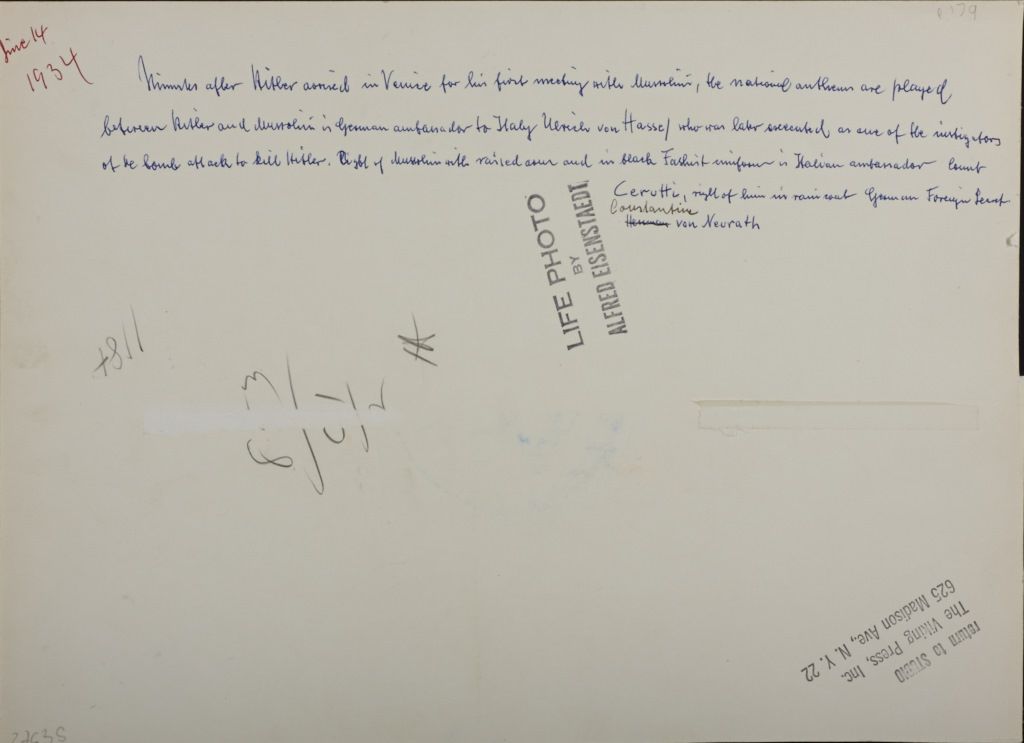 p 179
June 14
1934
Minutes after Hitler arrived in Venice for his first meeting with Mussolini, the national anthems are played
between Hitler and Mussolini is German ambassador to Italy Ulrich von Hassel who was later executed as one of the instigators
of the bomb attack to kill Hitler. Right of Mussolini with raised arm and in black Fashist uniform is Italian ambassador Count
Cerutti, right of him in raincoat German Foreign Secret
Constantin
von Neurath
LIFE PHOTO
BY
ALFRED EISENSTAEDT
return to STUDIO
The Viking Press, Inc.
625 Madison Ave., N. Y. 22